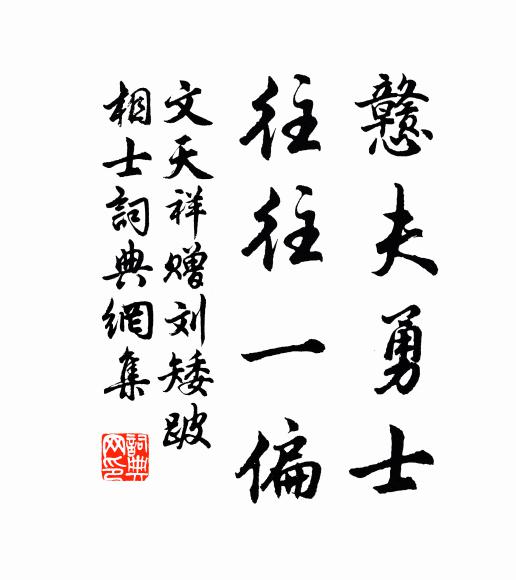 戇夫勇士
往往一偏
文天祥赠刘矮跛
相士詞典網集
詞典网印